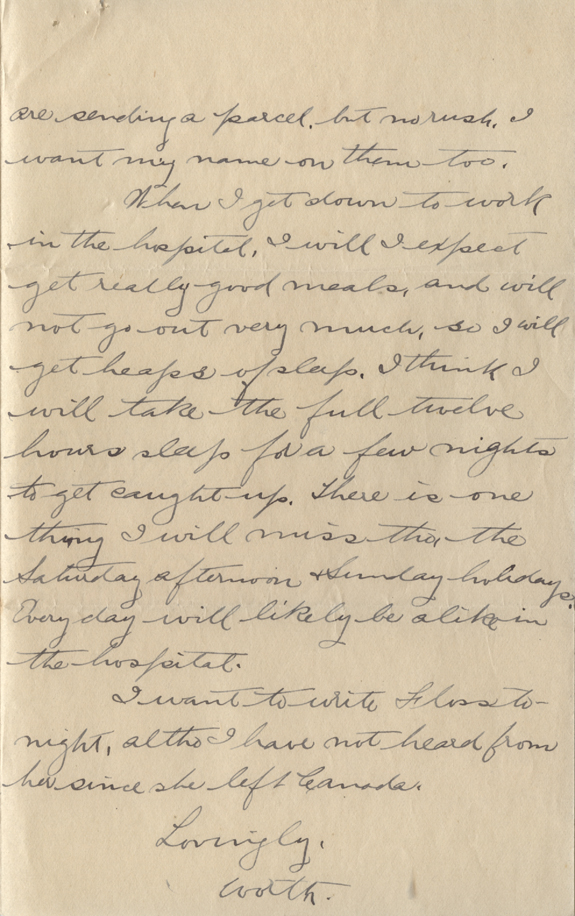 are sending a parcel, but no rush, I
want my name on them too.
When I get down to work
in the hospital, I will I expect
get really good meals, and will
not go out very much, so I will
get heaps of sleep. I think I
will take the full twelve
hours sleep for a few nights
to get caught up. There is one
thing I will miss tho, the
Saturday afternoon & Sunday holidays.
Every day will likely be alike in
the hospital.
I want to write Floss to-
night, altho I have not heard from
her since she left Canada.
Lovingly,
Worth.